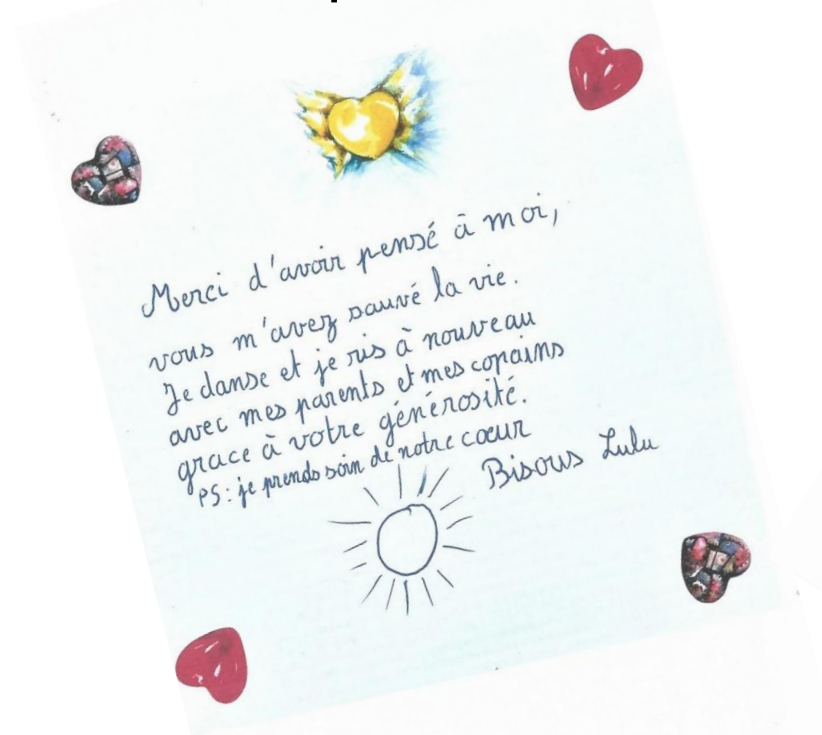 Merci d'avoir pensé à moi,
vous m'avez sauvé la vie.
Je danse et je ris à nouveau
avec mes parents et mes copains
grace à votre générosité.
PS: je prends soin de notre cœur
Bisous Lulu